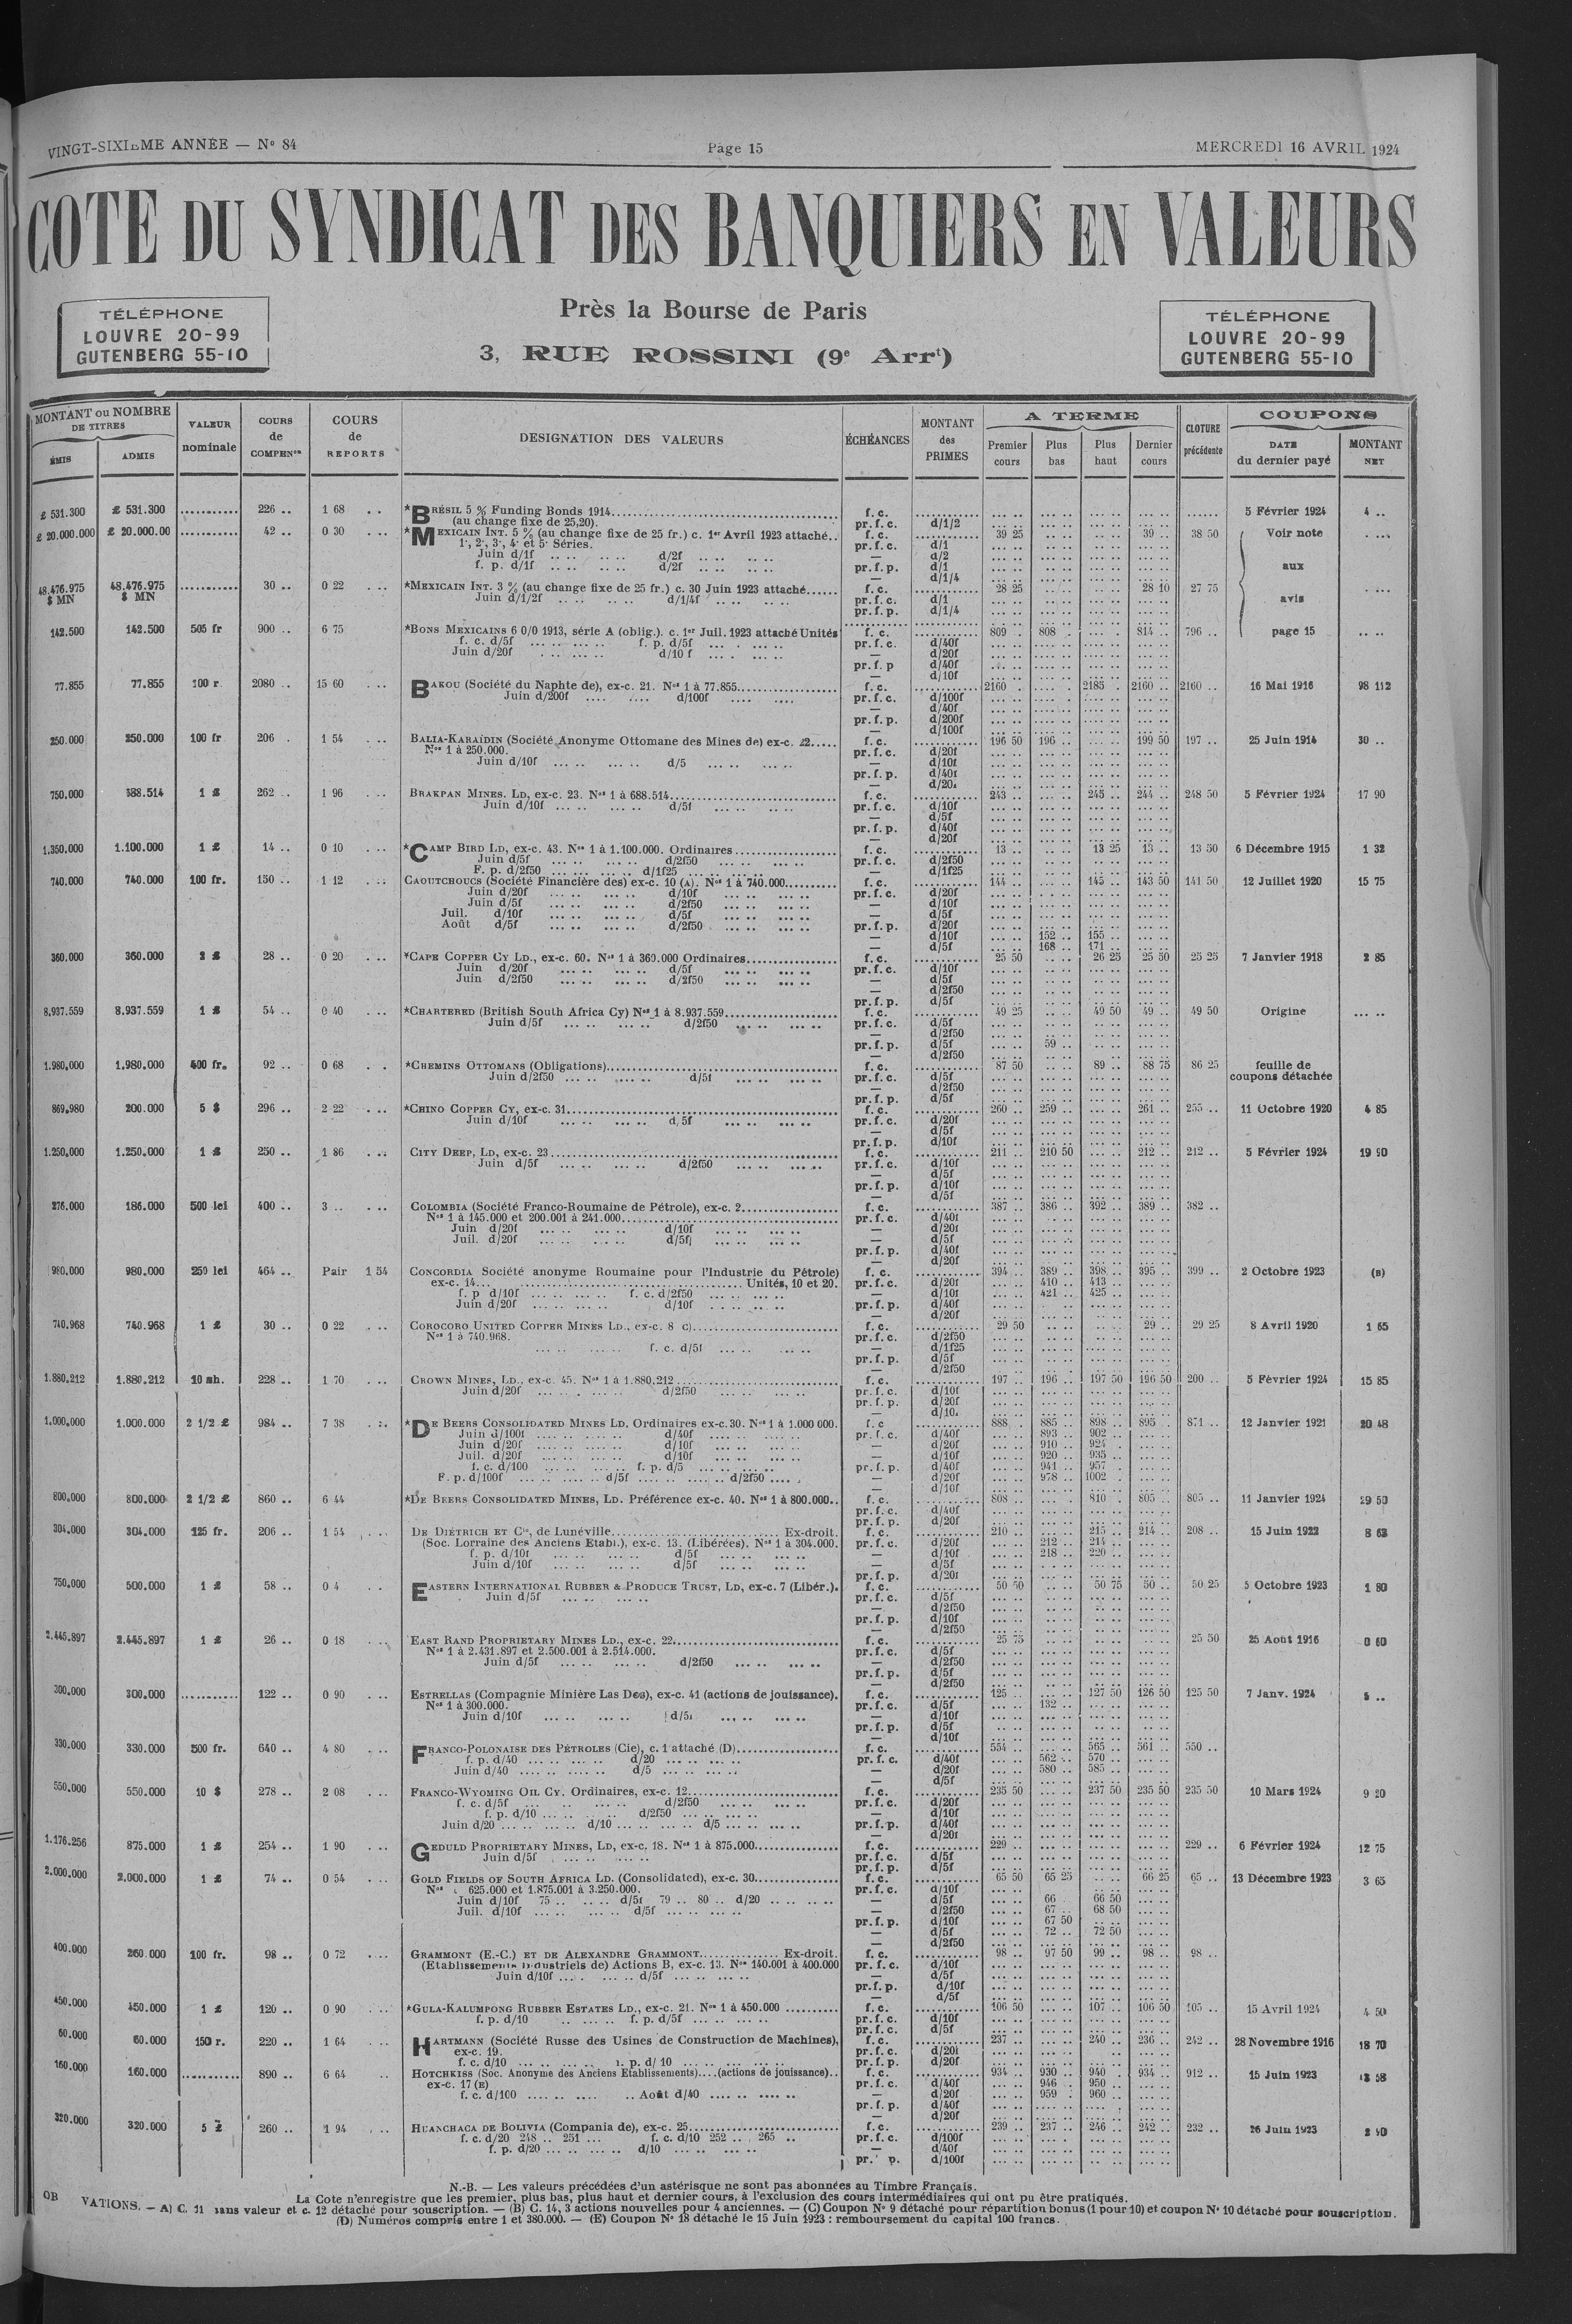 VINGT-SIXIEME ANNÉE — N° 84 Page 15 MERCREDI 16 AVRIL 1924
COTE DU SYNDICAT DES BANQUIERS EN VALEURS
TÉLÉPHONE
LOUVRE 20-99
GUTENBERG 55-10
Près la Bourse de Paris
3, RUE ROSSINI (9e Arrt)
TÉLÉPHONE
LOUVRE 20-99
GUTENBERG 55-10
MONTANT ou NOMBRE DE TITRES
ÉMIS ADMIS
VALEUR nominale
COURS de COMPENon
COURS de REPORTS
DESIGNATION DES VALEURS
ÉCHÉANCES
MONTANT des PRIMES
A TERME
Premier cours Plus bas Plus haut Dernier cours
CLOTURE précédente
COUPONS
DATE du dernier payé MONTANT NET
£ 531.300 £ 531.300 ........... 226 .. 1 68 *BRÉSIL 5 % Funding Bonds 1914 f. c. 5 Février 1924 4 ..
(au change fixe de 25,20). pr. f. c. d/1/2
£ 20.000.000 £ 20.000.00 ........... 42 .. 0 30 *MEXICAIN INT. 5 % (au change fixe de 25 fr.) c. 1er Avril 1923 attaché.. f. c. 39 25 39 .. 38 50 Voir note
1·, 2·, 3·, 4· et 5· Séries. pr. f. c. d/1
Juin d/1f d/2f — d/2
f. p. d/1f d/2f pr. f. p. d/1 aux
— d/1/4
48.476.975 $ MN 48.476.975 $ MN ........... 30 .. 0 22 *MEXICAIN INT. 3 % (au change fixe de 25 fr.) c. 30 Juin 1923 attaché f. c. 28 25 28 10 27 75
Juin d/1/2f d/1/4f pr. f. c. d/1 avis
pr. f. p. d/1/4
142.500 142.500 505 fr 900 .. 6 75 *BONS MEXICAINS 6 0/0 1913, série A (oblig.). c. 1er Juil. 1923 attaché Unités f. c. 809 . 808 . 814 .. 796 .. page 15
f. c. d/5f f. p. d/5f pr. f. c. d/40f
Juin d/20f d/10 f — d/20f
pr. f. p d/40f
— d/10f
77.855 77.855 100 r. 2080 .. 15 60 BAKOU (Société du Naphte de), ex-c. 21. Nos 1 à 77.855 f. c. 2160 . 2185 . 2160 .. 2160 .. 16 Mai 1916 98 112
Juin d/200f d/100f pr. f. c. d/100f
— d/40f
pr. f. p. d/200f
— d/100f
250.000 250.000 100 fr 206 . 1 54 BALIA-KARAÏDIN (Société Anonyme Ottomane des Mines de) ex-c. 22 f. c. 196 50 196 .. 199 50 197 .. 25 Juin 1914 30 ..
Nos 1 à 250.000. pr. f. c. d/20f
Juin d/10f d/5 — d/10f
pr. f. p. d/40f
— d/20f
750.000 588.514 1 £ 262 .. 1 96 BRAKPAN MINES. LD, ex-c. 23. Nos 1 à 688.514 f. c. 243 .. 245 .. 244 .. 248 50 5 Février 1924 17 90
Juin d/10f d/5f pr. f. c. d/10f
— d/5f
pr. f. p. d/40f
— d/20f
1.350.000 1.100.000 1 £ 14 .. 0 10 *CAMP BIRD LD, ex-c. 43. Nos 1 à 1.100.000. Ordinaires f. c. 13 .. 13 25 13 .. 13 50 6 Décembre 1915 1 32
Juin d/5f d/2f50 pr. f. c. d/2f50
F. p. d/2f50 d/1f25 — d/1f25
740.000 740.000 100 fr. 150 .. 1 12 CAOUTCHOUCS (Société Financière des) ex-c. 10 (A). Nos 1 à 740.000 f. c. 144 .. 145 .. 143 50 141 50 12 Juillet 1920 15 75
Juin d/20f d/10f pr. f. c. d/20f
Juin d/5f d/2f50 — d/10f
Juil. d/10f d/5f — d/5f
Août d/5f d/2f50 pr. f. p. d/20f
— d/10f 152 .. 155 ..
— d/5f 168 .. 171 ..
360.000 360.000 2 £ 28 .. 0 20 *CAPE COPPER CY LD., ex-c. 60. Nos 1 à 360.000 Ordinaires f. c. 25 50 26 25 25 50 25 25 7 Janvier 1918 2 85
Juin d/20f d/5f pr. f. c. d/10f
Juin d/2f50 d/2f50 — d/5f
— d/2f50
pr. f. p. d/5f
8.937.559 8.937.559 1 £ 54 .. 0 40 *CHARTERED (British South Africa Cy) Nos 1 à 8.937.559 f. c. 49 25 49 50 49 .. 49 50 Origine
Juin d/5f d/2f50 pr. f. c. d/5f
— d/2f50
pr. f. p. d/5f 59 ..
— d/2f50
1.980.000 1.980.000 400 fr. 92 .. 0 68 *CHEMINS OTTOMANS (Obligations) f. c. 87 50 89 .. 88 75 86 25 feuille de
Juin d/2f50 d/5f pr. f. c. d/5f coupons détachée
— d/2f50
pr. f. p. d/5f
869.980 200.000 5 $ 296 .. 2 22 *CHINO COPPER CY, ex-c. 31 f. c. 260 .. 259 .. 261 .. 255 .. 11 Octobre 1920 4 85
Juin d/10f d/5f pr. f. c. d/20f
— d/5f
pr. f. p. d/10f
1.250.000 1.250.000 1 £ 250 .. 1 86 CITY DEEP, LD, ex-c. 23 f. c. 211 .. 210 50 212 .. 212 .. 5 Février 1924 19 90
Juin d/5f d/2f50 pr. f. c. d/10f
— d/5f
pr. f. p. d/10f
— d/5f
276.000 186.000 500 lei 400 .. 3 .. COLOMBIA (Société Franco-Roumaine de Pétrole), ex-c. 2 f. c. 387 .. 386 .. 392 .. 389 .. 382 ..
Nos 1 à 145.000 et 200.001 à 241.000 pr. f. c. d/40f
Juin d/20f d/10f — d/20f
Juil. d/20f d/5f — d/5f
pr. f. p. d/40f
— d/20f
980.000 980.000 250 lei 464 .. Pair 1 54 CONCORDIA Société anonyme Roumaine pour l'Industrie du Pétrole) f. c. 394 .. 389 .. 398 .. 395 .. 399 .. 2 Octobre 1923 (B)
ex-c. 14 Unités, 10 et 20. pr. f. c. d/20f 410 .. 413 ..
f. p d/10f f. c. d/2f50 — d/10f 421 .. 425 ..
Juin d/20f d/10f pr. f. p. d/40f
— d/20f
740.968 740.968 1 £ 30 .. 0 22 COROCORO UNITED COPPER MINES LD., ex-c. 8 C) f. c. 29 50 29 .. 29 25 8 Avril 1920 1 65
Nos 1 à 740.968. pr. f. c. d/2f50
f. c. d/5f — d/1f25
pr. f. p. d/5f
— d/2f50
1.880.212 1.880.212 10 sh. 228 .. 1 70 CROWN MINES, LD., ex-c. 45. Nos 1 à 1.880.212 f. c. 197 .. 196 .. 197 50 196 50 200 .. 5 Février 1924 15 85
Juin d/20f d/2f50 pr. f. c. d/10f
pr. f. p. d/20f
— d/10.
1.000.000 1.000.000 2 1/2 £ 984 .. 7 38 *DE BEERS CONSOLIDATED MINES LD. Ordinaires ex-c. 30. Nos 1 à 1.000 000. f. c 888 . 885 .. 898 .. 895 .. 871 .. 12 Janvier 1921 20 48
Juin d/100f d/40f pr. f. c. d/40f 893 .. 902 ..
Juin d/20f d/10f — d/20f 910 .. 924 .
Juil. d/20f d/10f — d/10f 920 .. 935 ..
f. c. d/100 f. p. d/5 pr. f. p. d/40f 941 .. 957 .
F. p. d/100f d/5f d/2f50 — d/20f 978 .. 1002 .
— d/10f
800.000 800.000 2 1/2 £ 860 .. 6 44 *DE BEERS CONSOLIDATED MINES, LD. Préférence ex-c. 40. Nos 1 à 800.000.. f. c. 808 .. 810 . 805 .. 805 .. 11 Janvier 1924 29 50
pr. f. c. d/40f
pr. f. p. d/20f
304.000 304.000 125 fr. 206 .. 1 54 DE DIÉTRICH ET Cie, de Lunéville Ex-droit. f. c. 210 .. 215 .. 214 .. 208 .. 15 Juin 1922 8 63
(Soc. Lorraine des Anciens Etabl.), ex-c. 13. (Libérées). Nos 1 à 304.000. pr. f. c. d/20f 212 .. 214 ..
f. p. d/10f d/5f — d/10f 218 .. 220 ..
Juin d/10f d/5f — d/5f
pr. f. p. d/20f
750.000 500.000 1 £ 58 .. 0 4 EASTERN INTERNATIONAL RUBBER & PRODUCE TRUST, LD, ex-c. 7 (Libér.). f. c. 50 50 50 75 50 .. 50 25 5 Octobre 1923 1 80
Juin d/5f pr. f. c. d/5f
— d/2f50
pr. f. p. d/10f
— d/2f50
2.445.897 2.445.897 1 £ 26 .. 0 18 EAST RAND PROPRIETARY MINES LD., ex-c. 22 f. c. 25 75 25 50 25 Août 1916 0 60
Nos 1 à 2.431.897 et 2.500.001 à 2.514.000. pr. f. c. d/5f
Juin d/5f d/2f50 — d/2f50
pr. f. p. d/5f
— d/2f50
300.000 300.000 .......... 122 .. 0 90 ESTRELLAS (Compagnie Minière Las Dos), ex-c. 41 (actions de jouissance). f. c. 125 .. 127 50 126 50 125 50 7 Janv. 1924 5 ..
Nos 1 à 300.000. pr. f. c. d/5f 132 ..
Juin d/10f d/5f — d/10f
pr. f. p. d/5f
— d/10f
330.000 330.000 500 fr. 640 .. 4 80 FRANCO-POLONAISE DES PÉTROLES (Cie), c. 1 attaché (D) f. c. 554 .. 565 .. 561 .. 550 ..
f. p. d/40 d/20 pr. f. c. d/40f 562 .. 570 ..
Juin d/40 d/5 — d/20f 580 .. 585 ..
— d/5f
550.000 550.000 10 $ 278 .. 2 08 FRANCO-WYOMING OIL CY. Ordinaires, ex-c. 12 f. c. 235 50 237 50 235 50 235 50 10 Mars 1924 9 20
f. c. d/5f d/2f50 pr. f. c. d/20f
f. p. d/10 d/2f50 — d/10f
Juin d/20 d/10 d/5 pr. f. p. d/40f
— d/20f
1.176.256 875.000 1 £ 254 .. 1 90 GEDULD PROPRIETARY MINES, LD, ex-c. 18. Nos 1 à 875.000 f. c. 229 .. 229 .. 6 Février 1924 12 75
Juin d/5f pr. f. c. d/5f
pr. f. p. d/5f
2.000.000 2.000.000 1 £ 74 .. 0 54 GOLD FIELDS OF SOUTH AFRICA LD. (Consolidated), ex-c. 30 f. c. 65 50 65 25 66 25 65 .. 13 Décembre 1923 3 65
Nos 625.000 et 1.875.001 à 3.250.000. pr. f. c. d/10f
Juin d/10f 75 .. d/5f 79 .. 80 .. d/20 — d/5f 66 . 66 50
Juil. d/10f d/5f — d/2f50 67 .. 68 50
pr. f. p. d/10f 67 50
— d/5f 72 .. 72 50
— d/2f50
400.000 260.000 100 fr. 98 .. 0 72 GRAMMONT (E.-C.) ET DE ALEXANDRE GRAMMONT Ex-droit. f. c. 98 .. 97 50 99 .. 98 .. 98 ..
(Etablissements Industriels de) Actions B, ex-c. 13. Nos 140.001 à 400.000 pr. f. c. d/10f
Juin d/10f d/5f — d/5f
pr. f. p. d/10f
— d/5f
450.000 450.000 1 £ 120 .. 0 90 *GULA-KALUMPONG RUBBER ESTATES LD., ex-c. 21. Nos 1 à 450.000 f. c. 106 50 107 .. 106 50 105 .. 15 Avril 1924 4 50
f. p. d/10 f. p. d/5f pr. f. c. d/10f
pr. f. c. d/5f
60.000 60.000 150 r. 220 .. 1 64 HARTMANN (Société Russe des Usines de Construction de Machines), f. c. 237 .. 240 .. 236 .. 242 .. 28 Novembre 1916 18 70
ex-c. 19. pr. f. c. d/20f
f. c. d/10 f. p. d/10 pr. f. p. d/20f
160.000 160.000 ........... 890 .. 6 64 HOTCHKISS (Soc. Anonyme des Anciens Etablissements)....(actions de jouissance).. f. c. 934 .. 930 .. 940 . 934 .. 912 .. 15 Juin 1923 13 58
ex-c. 17 (E) pr. f. c. d/40f 946 .. 950 ..
f. c. d/100 Août d/40 — d/20f 959 . 960 ..
pr. f. p. d/40f
— d/20f
320.000 320.000 5 £ 260 .. 1 94 HUANCHACA DE BOLIVIA (Compania de), ex-c. 25 f. c. 239 .. 237 .. 246 .. 242 .. 232 .. 26 Juin 1923 2 90
f. c. d/20 248 .. 251 ... f. c. d/10 252 .. 265 .. pr. f. c. d/100f
f. p. d/20 d/10 — d/40f
pr. p. d/100f
N.-B. — Les valeurs précédées d'un astérisque ne sont pas abonnées au Timbre Français.
La Cote n'enregistre que les premier, plus bas, plus haut et dernier cours, à l'exclusion des cours intermédiaires qui ont pu être pratiqués.
OB VATIONS. — A) C. 11 sans valeur et c. 12 détaché pour souscription. — (B) C. 14, 3 actions nouvelles pour 4 anciennes. — (C) Coupon N° 9 détaché pour répartition bonus (1 pour 10) et coupon N° 10 détaché pour souscription.
(D) Numéros compris entre 1 et 380.000. — (E) Coupon N° 18 détaché le 15 Juin 1923 : remboursement du capital 100 francs.